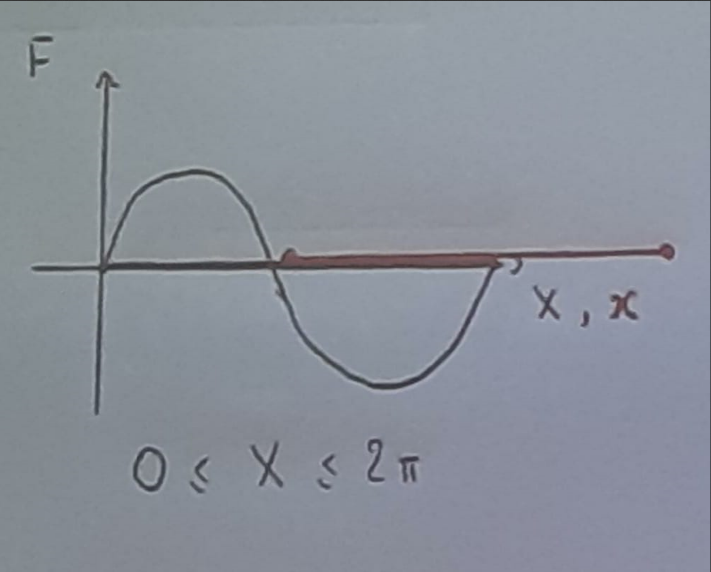 F
X , x
0 ≤ X ≤ 2π